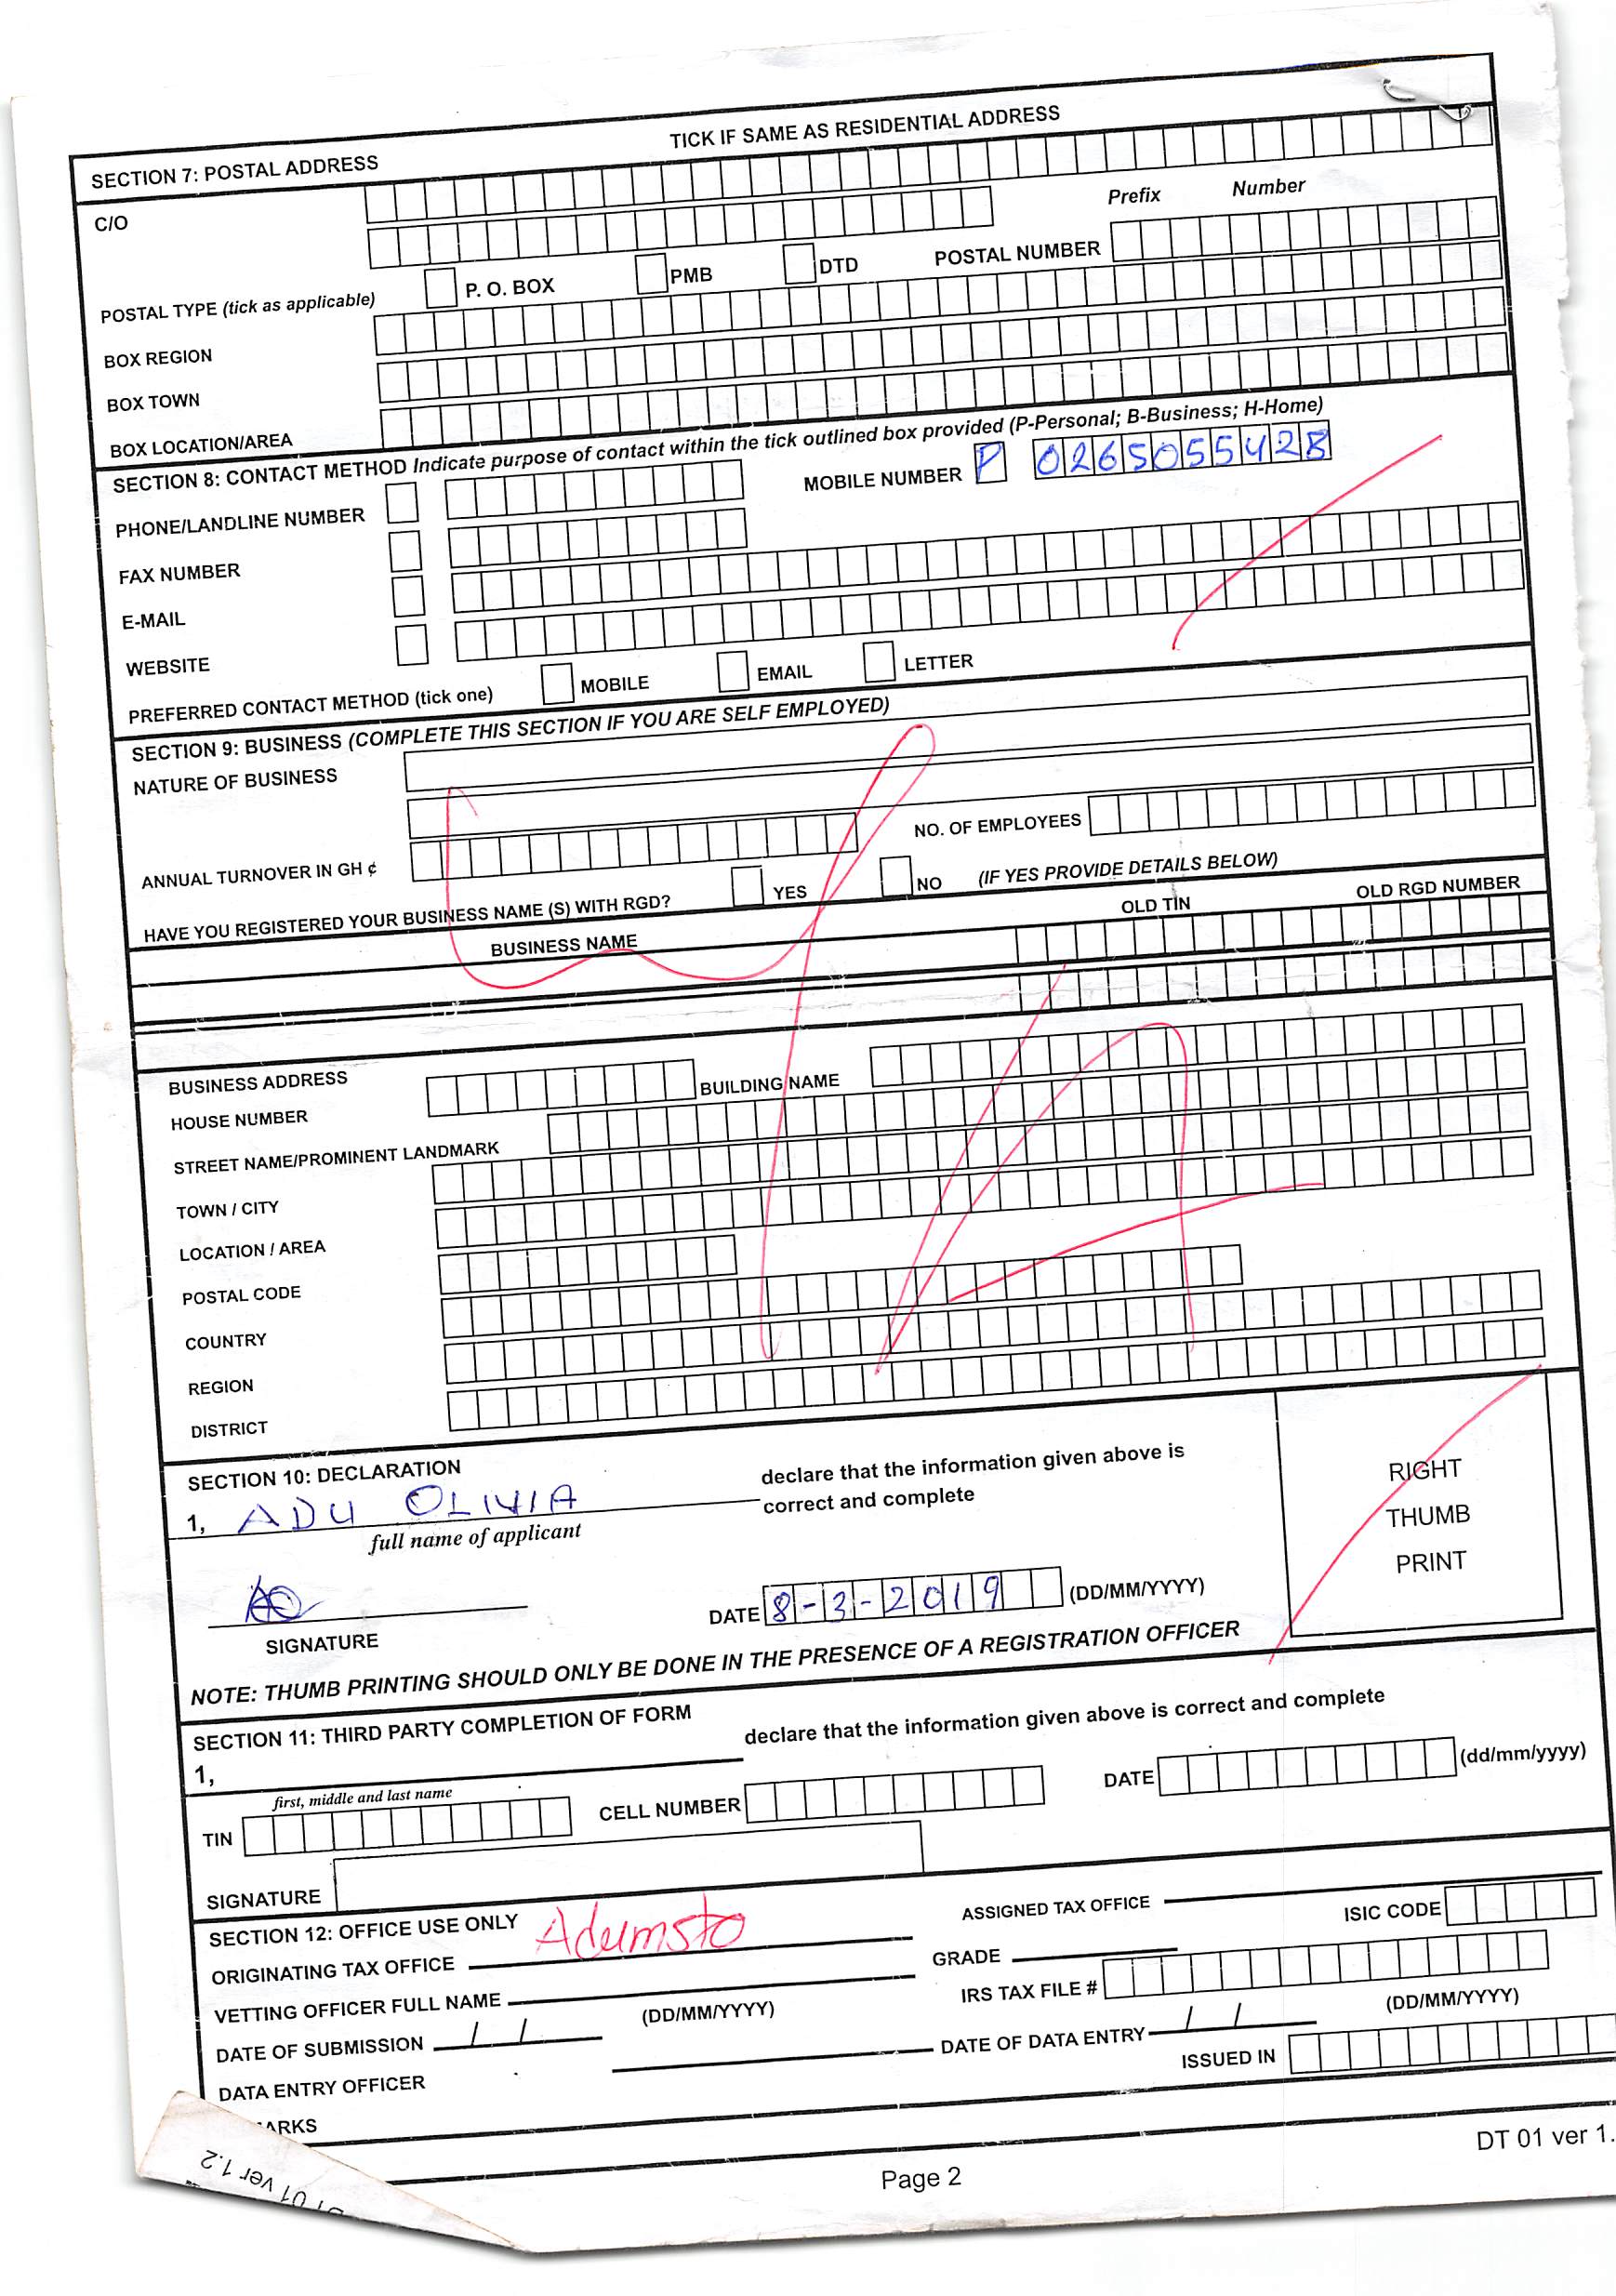 SECTION 7: POSTAL ADDRESS TICK IF SAME AS RESIDENTIAL ADDRESS
C/O
Prefix Number
POSTAL TYPE (tick as applicable) P. O. BOX PMB DTD POSTAL NUMBER
BOX REGION
BOX TOWN
BOX LOCATION/AREA
SECTION 8: CONTACT METHOD Indicate purpose of contact within the tick outlined box provided (P-Personal; B-Business; H-Home)
PHONE/LANDLINE NUMBER MOBILE NUMBER P 0265055428
FAX NUMBER
E-MAIL
WEBSITE
PREFERRED CONTACT METHOD (tick one) MOBILE EMAIL LETTER
SECTION 9: BUSINESS (COMPLETE THIS SECTION IF YOU ARE SELF EMPLOYED)
NATURE OF BUSINESS
ANNUAL TURNOVER IN GH ¢ NO. OF EMPLOYEES
HAVE YOU REGISTERED YOUR BUSINESS NAME (S) WITH RGD? YES NO (IF YES PROVIDE DETAILS BELOW)
BUSINESS NAME OLD TIN OLD RGD NUMBER
BUSINESS ADDRESS
HOUSE NUMBER BUILDING NAME
STREET NAME/PROMINENT LANDMARK
TOWN / CITY
LOCATION / AREA
POSTAL CODE
COUNTRY
REGION
DISTRICT
SECTION 10: DECLARATION
1, ADU OLIVIA declare that the information given above is
correct and complete
full name of applicant
RIGHT
THUMB
PRINT
DATE 8-3-2019 (DD/MM/YYYY)
SIGNATURE
NOTE: THUMB PRINTING SHOULD ONLY BE DONE IN THE PRESENCE OF A REGISTRATION OFFICER
SECTION 11: THIRD PARTY COMPLETION OF FORM
1, declare that the information given above is correct and complete
first, middle and last name
TIN CELL NUMBER DATE (dd/mm/yyyy)
SIGNATURE
SECTION 12: OFFICE USE ONLY
ORIGINATING TAX OFFICE ASSIGNED TAX OFFICE ISIC CODE
VETTING OFFICER FULL NAME GRADE
IRS TAX FILE #
DATE OF SUBMISSION / / (DD/MM/YYYY)
DATE OF DATA ENTRY / / (DD/MM/YYYY)
DATA ENTRY OFFICER ISSUED IN
ARKS
Page 2
DT 01 ver 1.
DT 01 ver 1.2